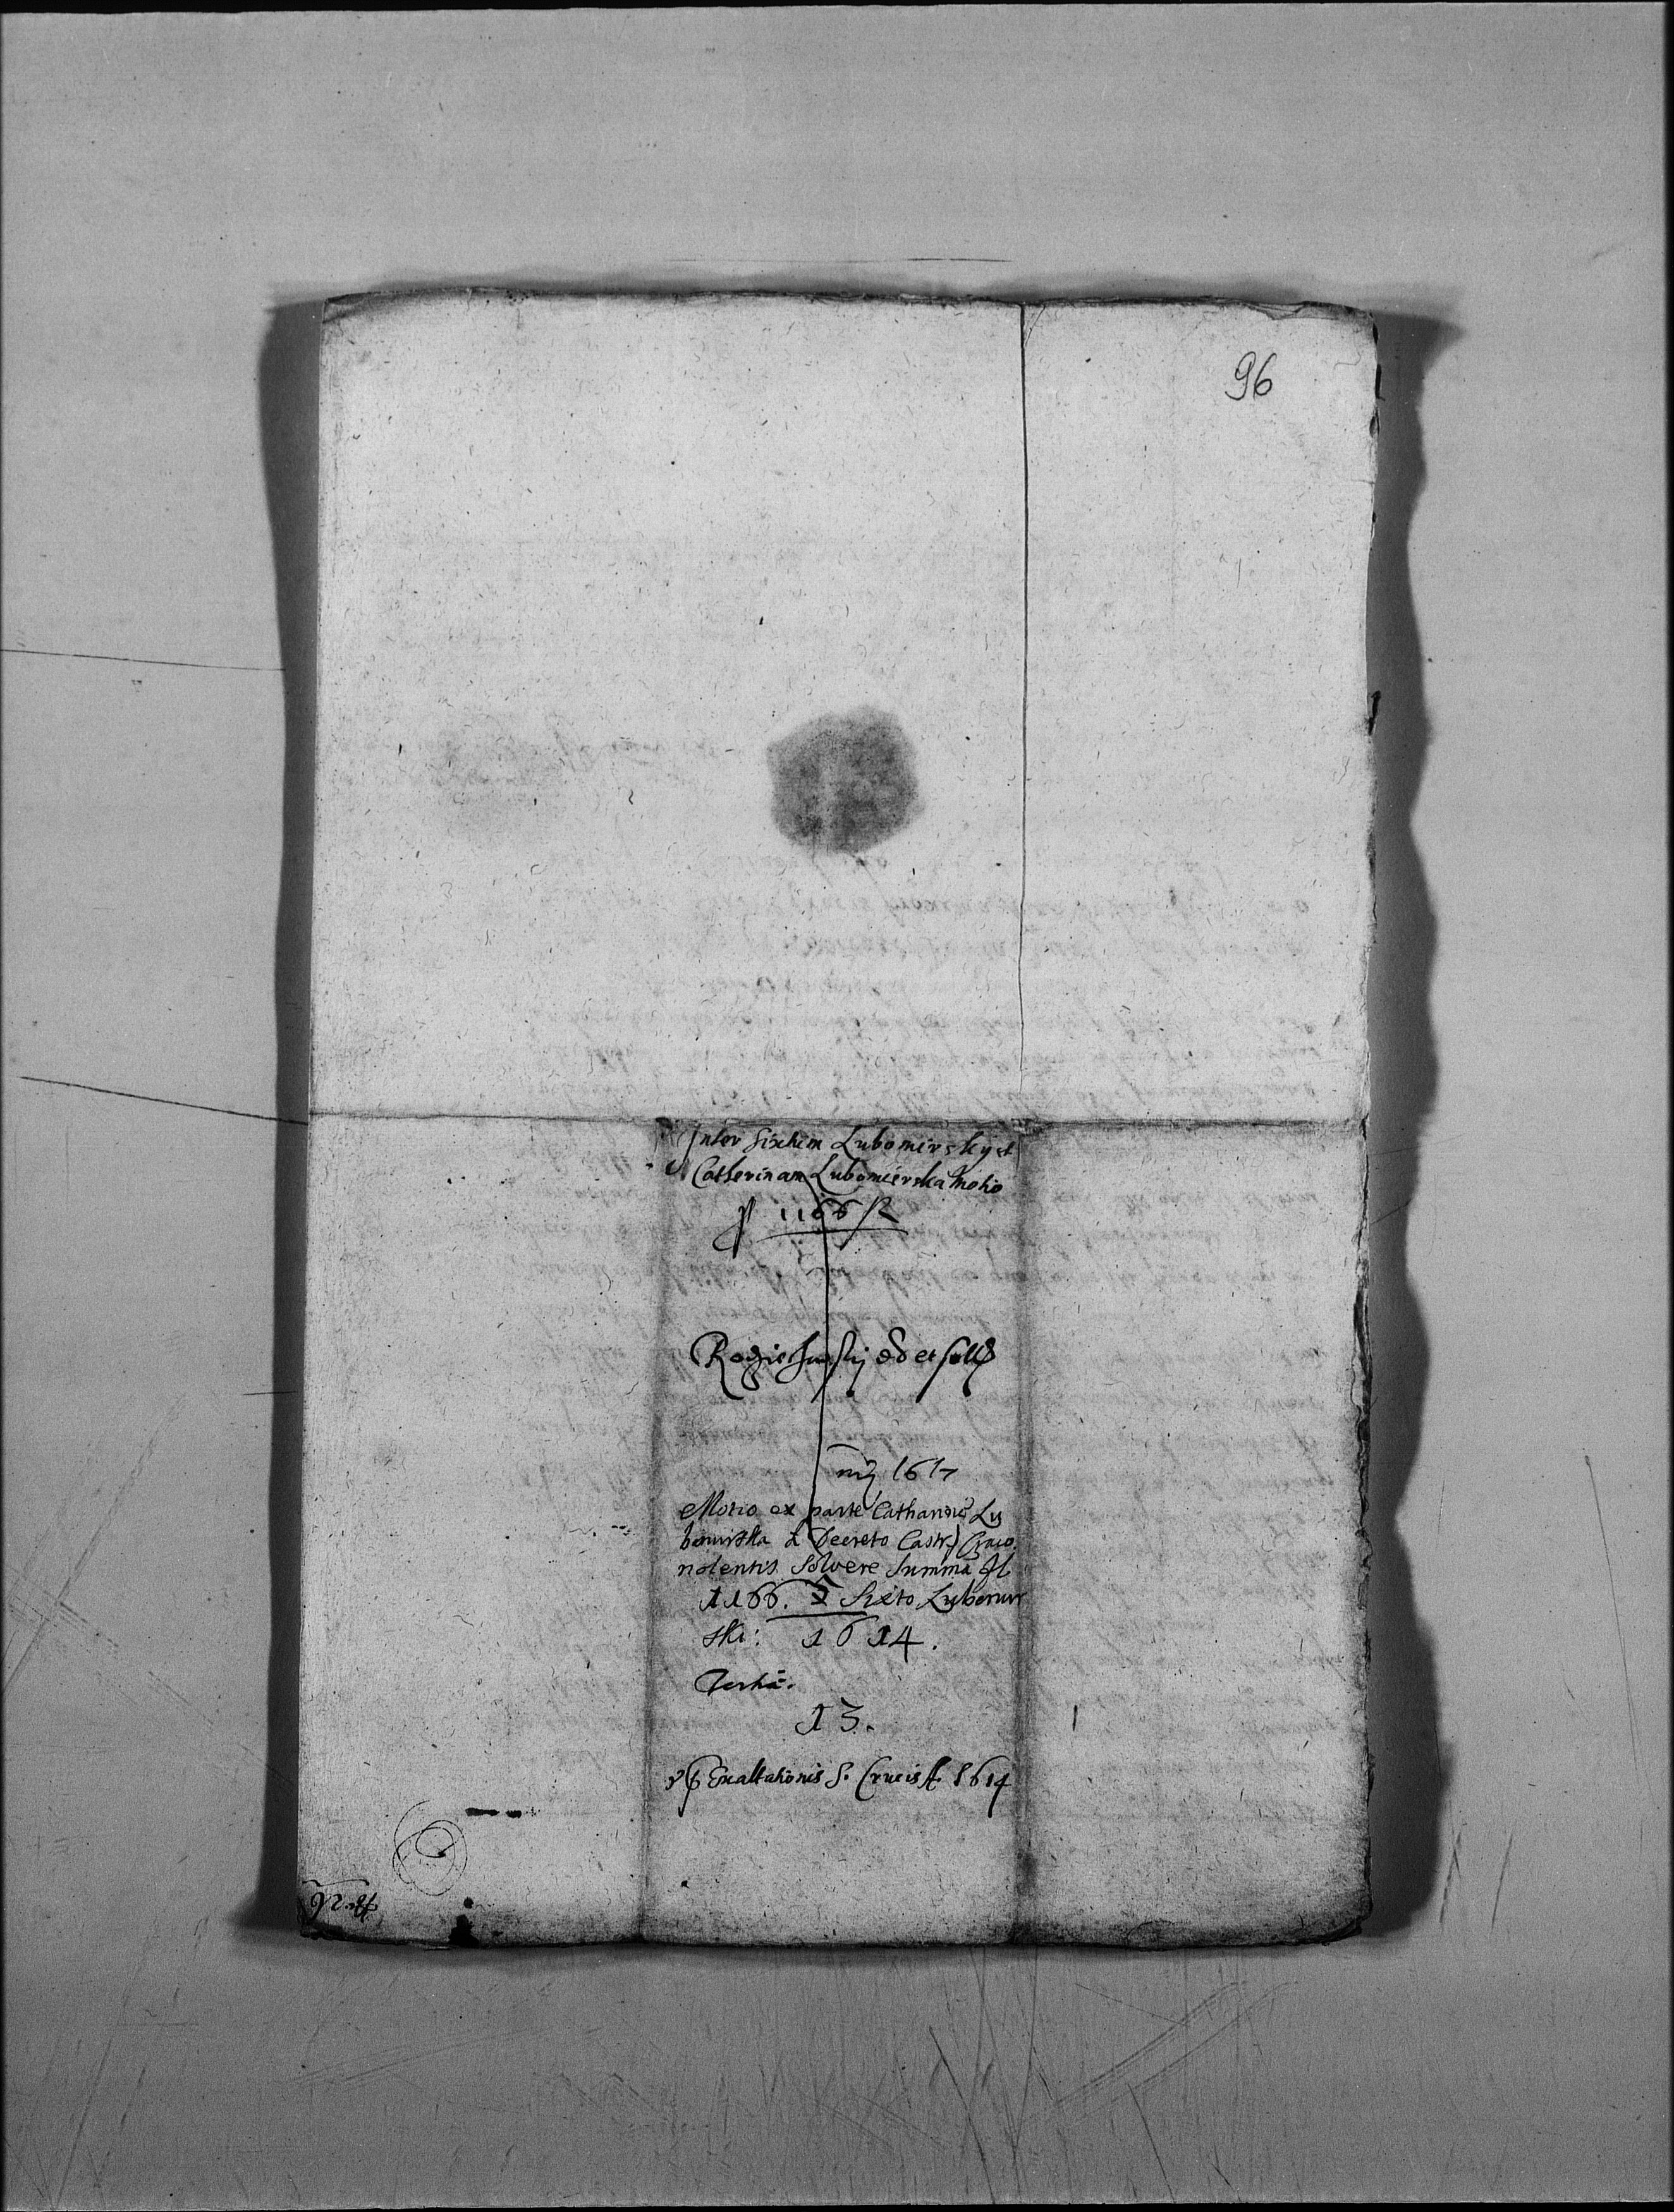 96
Inter Sixtum Lubomirsky et
Catherinam Lubomierska motio
fl 1166
et
1617
Motio ex parte Catharinæ Lu
bomirska a Decreto Castr Craco.
nolentis solvere summa fl
1166. Sixto Lubomir
ski: 1614.
Tertia.
13.
Exaltationis S. Crucis A. 1614